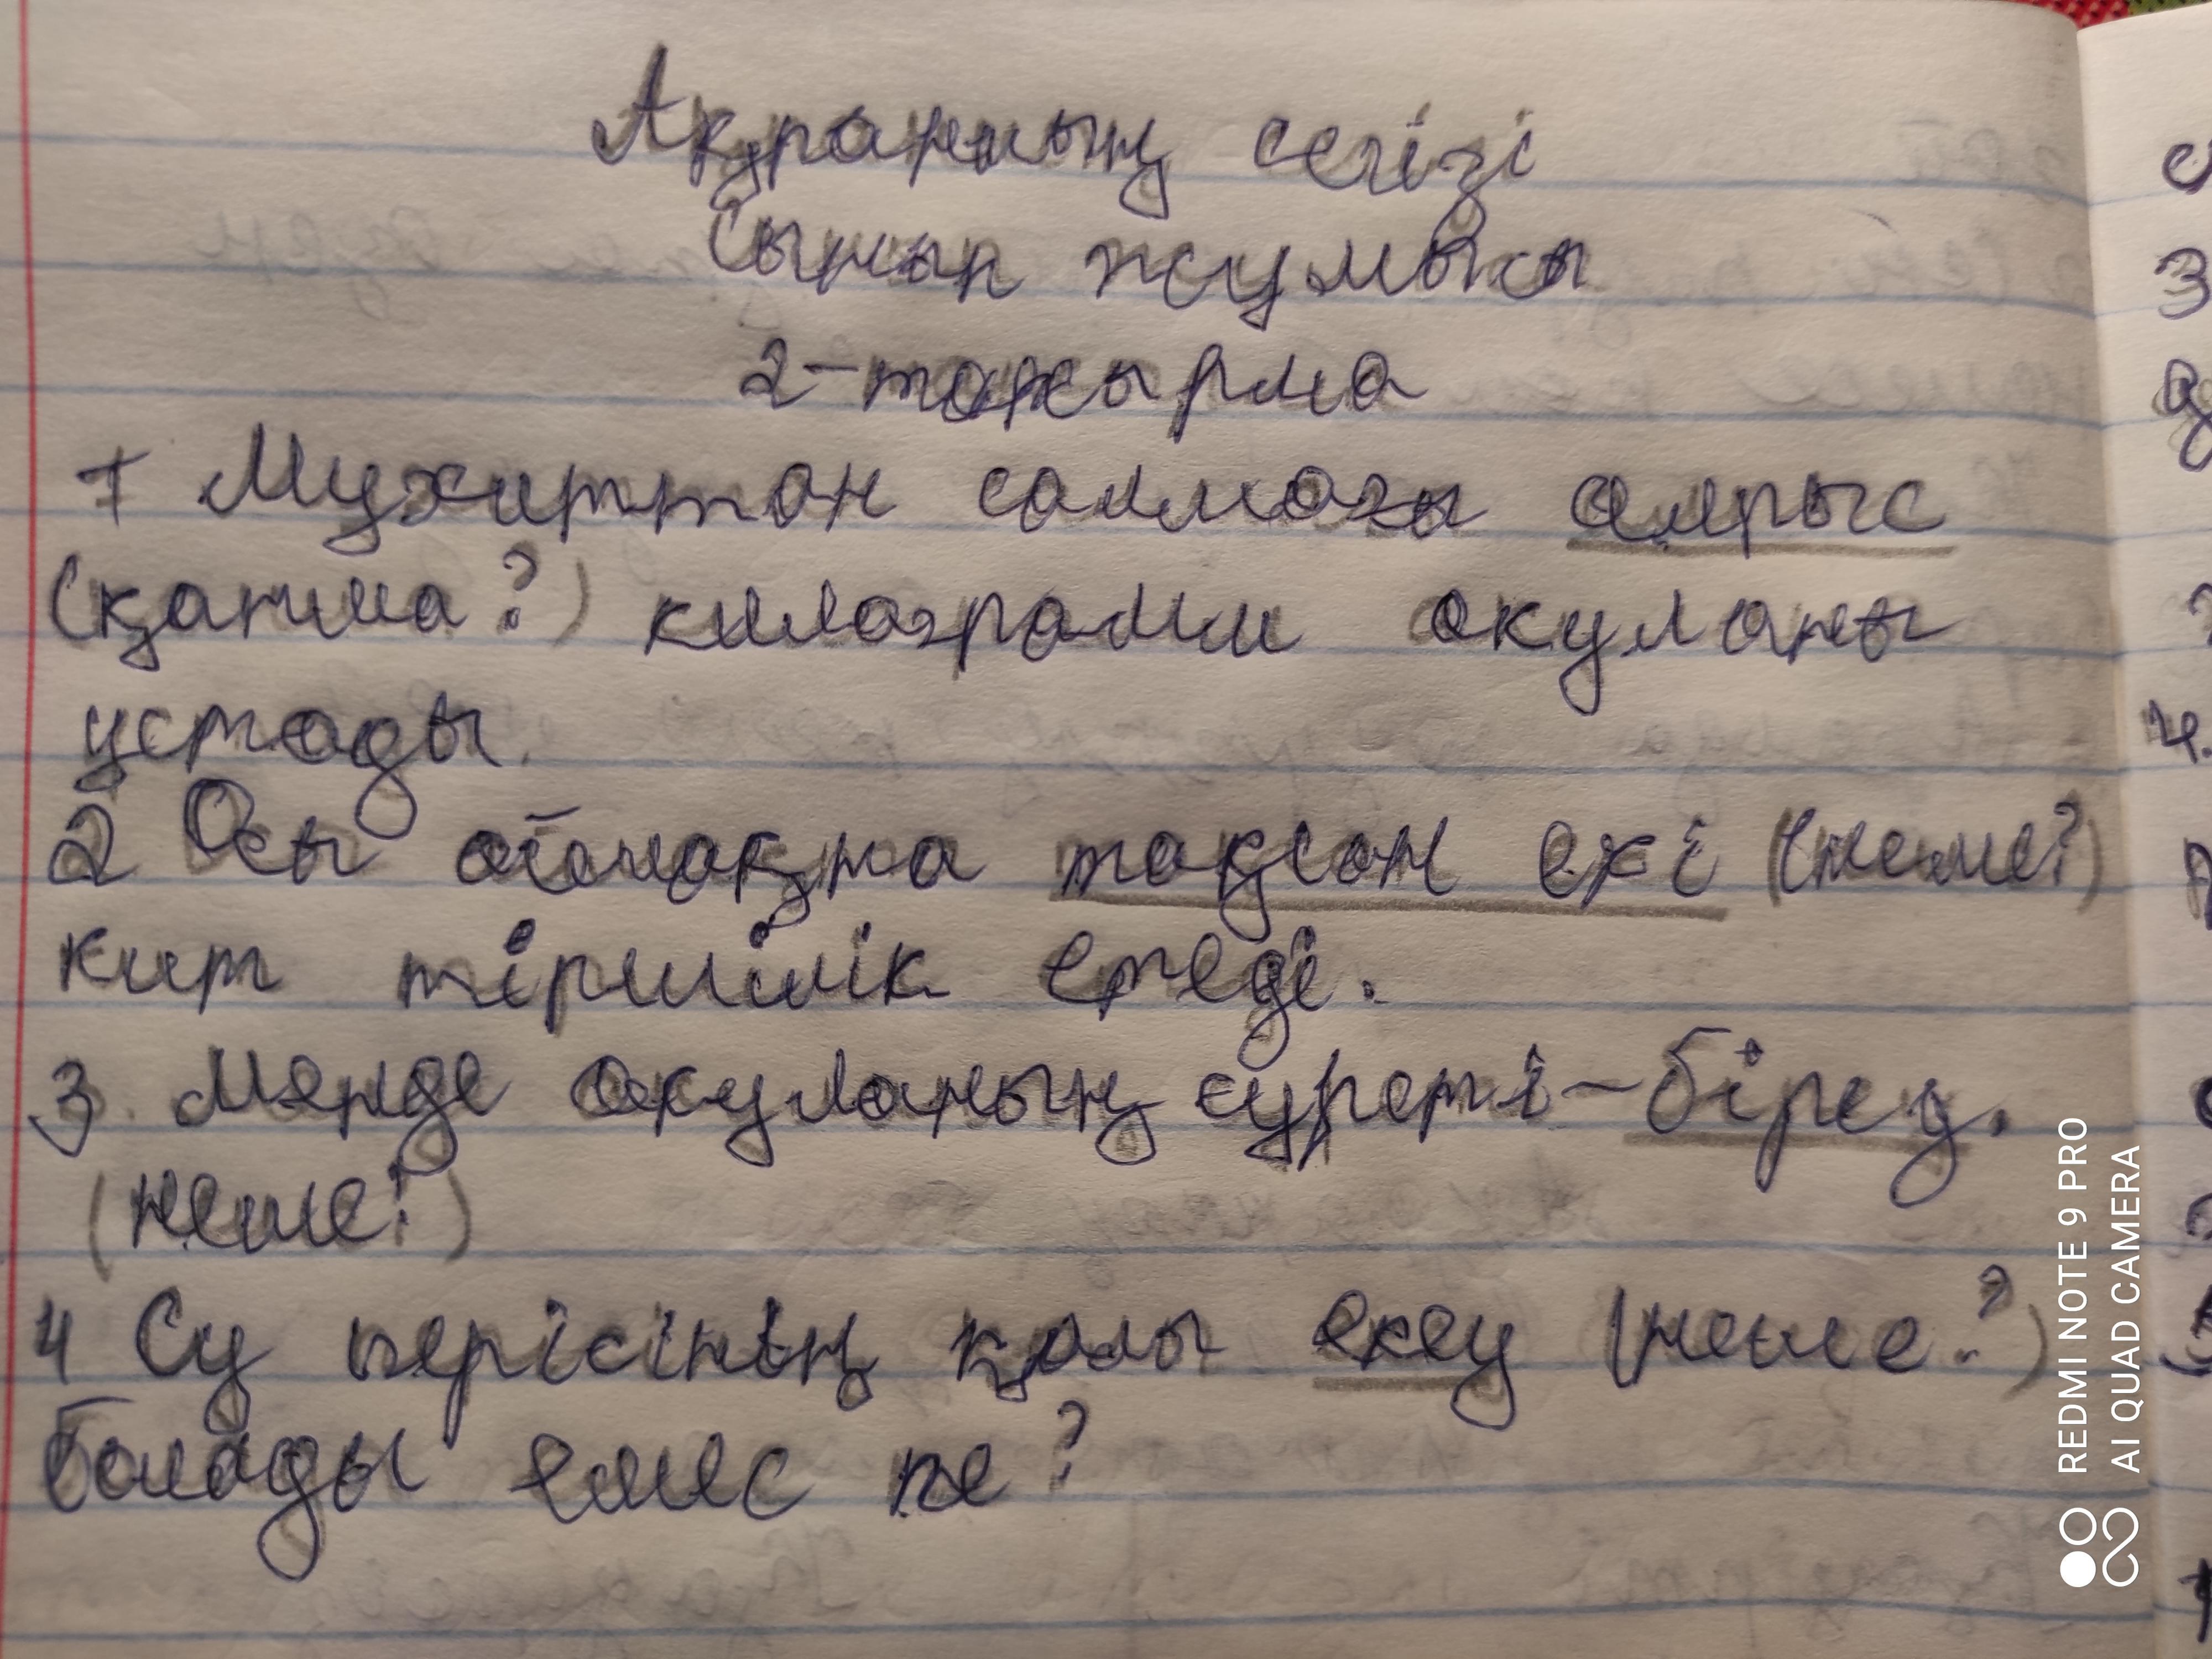 Ақпанның сегізі
Сынып жұмысы
2-тапсырма
1 Мұхиттан салмағы алпыс
(қанша?) килограмм акуланы
ұстады.
2 Осы аймақта тоқсан екі (неше?)
кит тіршілік етеді.
3. Менде акуланың суреті-біреу.
(неше?)
4 Су перісінің қолы екеу (неше?)
болады емес пе?
REDMI NOTE 9 PRO
AI QUAD CAMERA